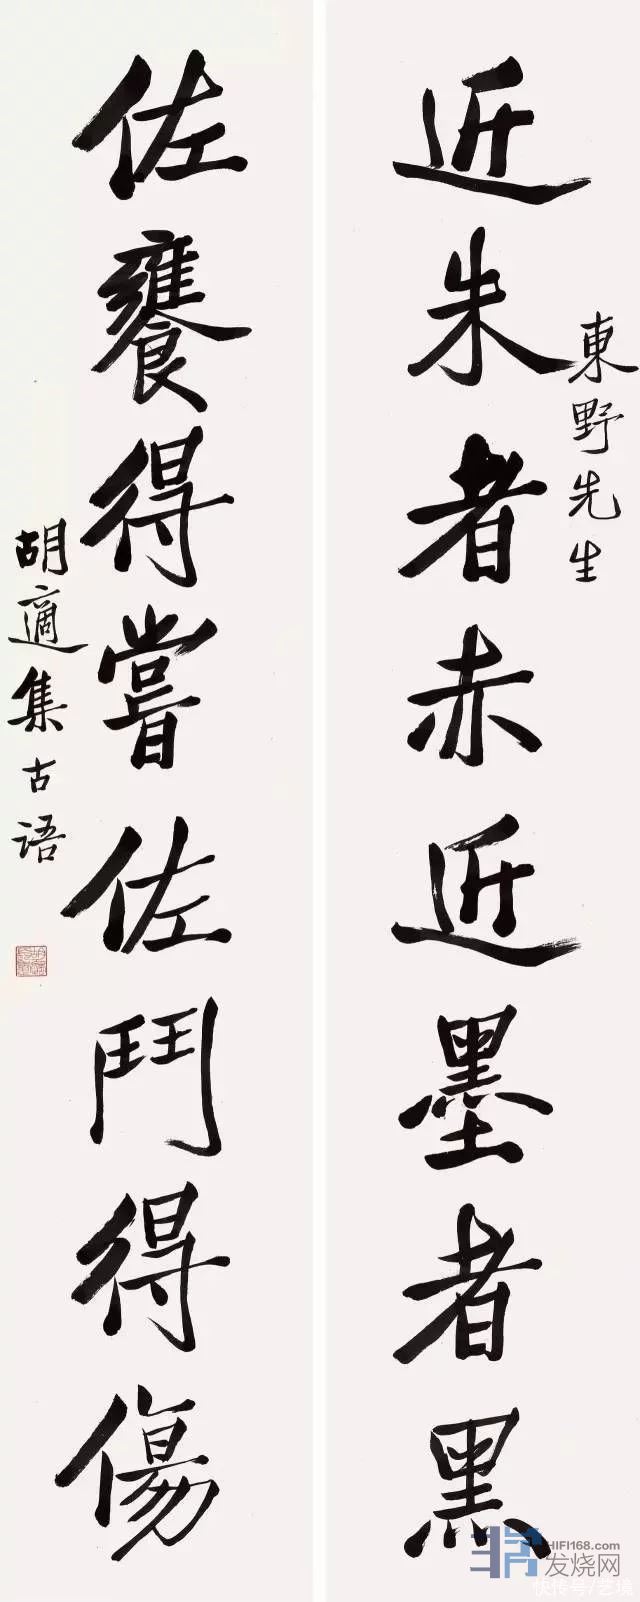 東野先生
近朱者赤近墨者黑
佐饔得嘗佐鬥得傷
胡適集古语
HIFI168.com
发烧网
快传号/艺境